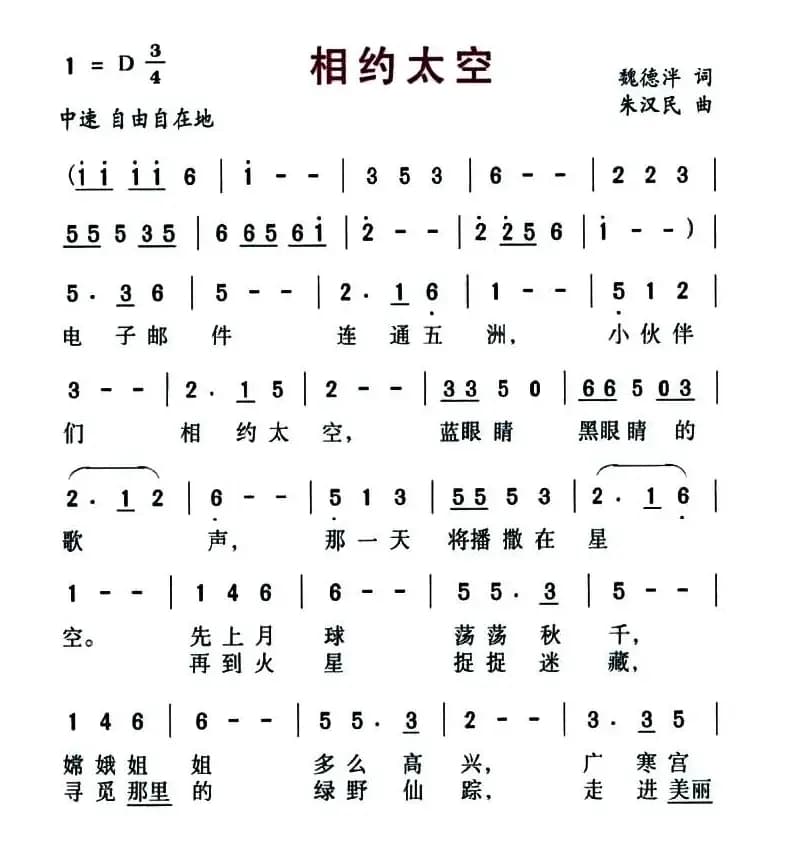 1 = D 3/4 相约太空 魏德泮 词
中速 自由自在地 朱汉民 曲
(i i i i 6 | i - - | 3 5 3 | 6 - - | 2 2 3 |
5 5 5 3 5 | 6 6 5 6 i | 2 - - | 2 2 5 6 | i - - ) |
5 . 3 6 | 5 - - | 2 . 1 6 | 1 - - | 5 1 2 |
电 子 邮 件 连 通 五 洲, 小 伙 伴
3 - - | 2 . 1 5 | 2 - - | 3 3 5 0 | 6 6 5 0 3 |
们 相 约 太 空, 蓝 眼 睛 黑 眼 睛 的
2 . 1 2 | 6 - - | 5 1 3 | 5 5 5 3 | 2 . 1 6 |
歌 声, 那 一 天 将 播 撒 在 星
1 - - | 1 4 6 | 6 - - | 5 5 . 3 | 5 - - |
空。 先 上 月 球 荡 荡 秋 千,
再 到 火 星 捉 捉 迷 藏,
1 4 6 | 6 - - | 5 5 . 3 | 2 - - | 3 . 3 5 |
嫦 娥 姐 姐 多 么 高 兴, 广 寒 宫
寻 觅 那里 的 绿 野 仙 踪, 走 进 美丽